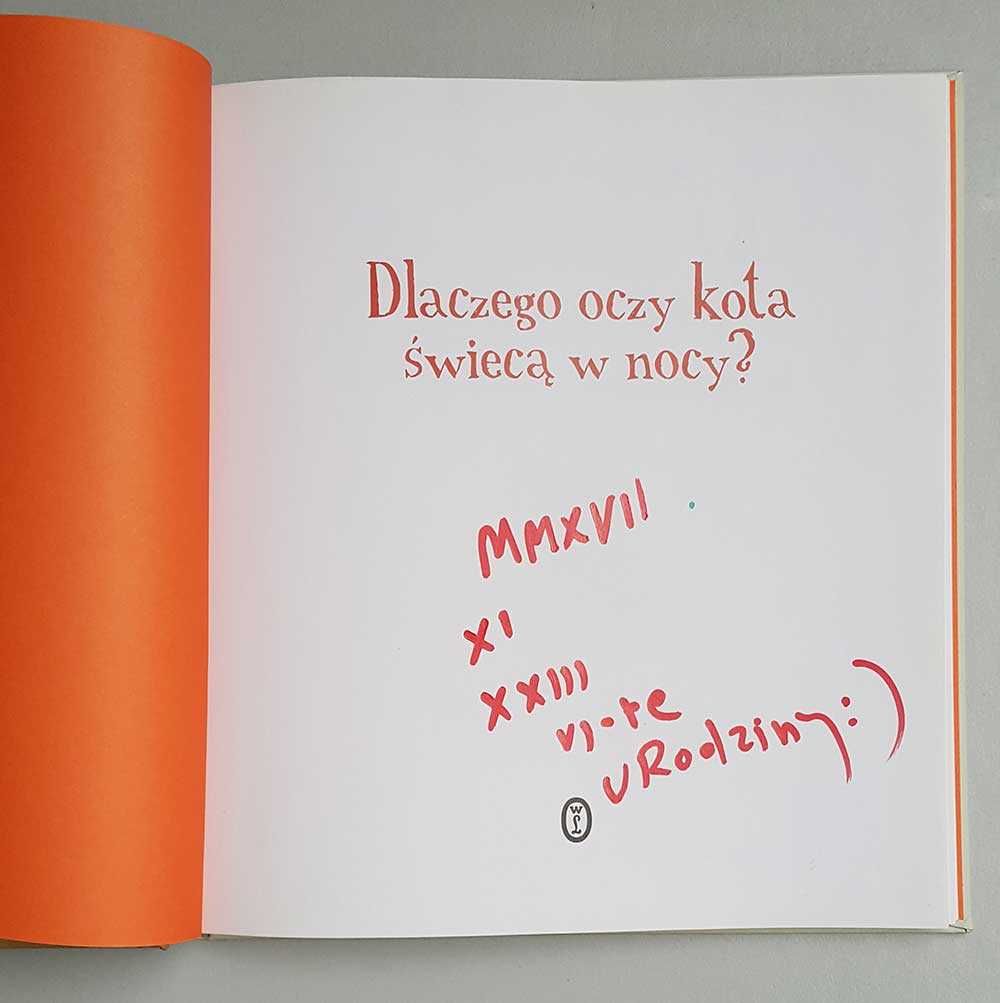 Dlaczego oczy kota
świecą w nocy?
MMXVII
XI
XXIII
VI-te
URodziny:)
W
L